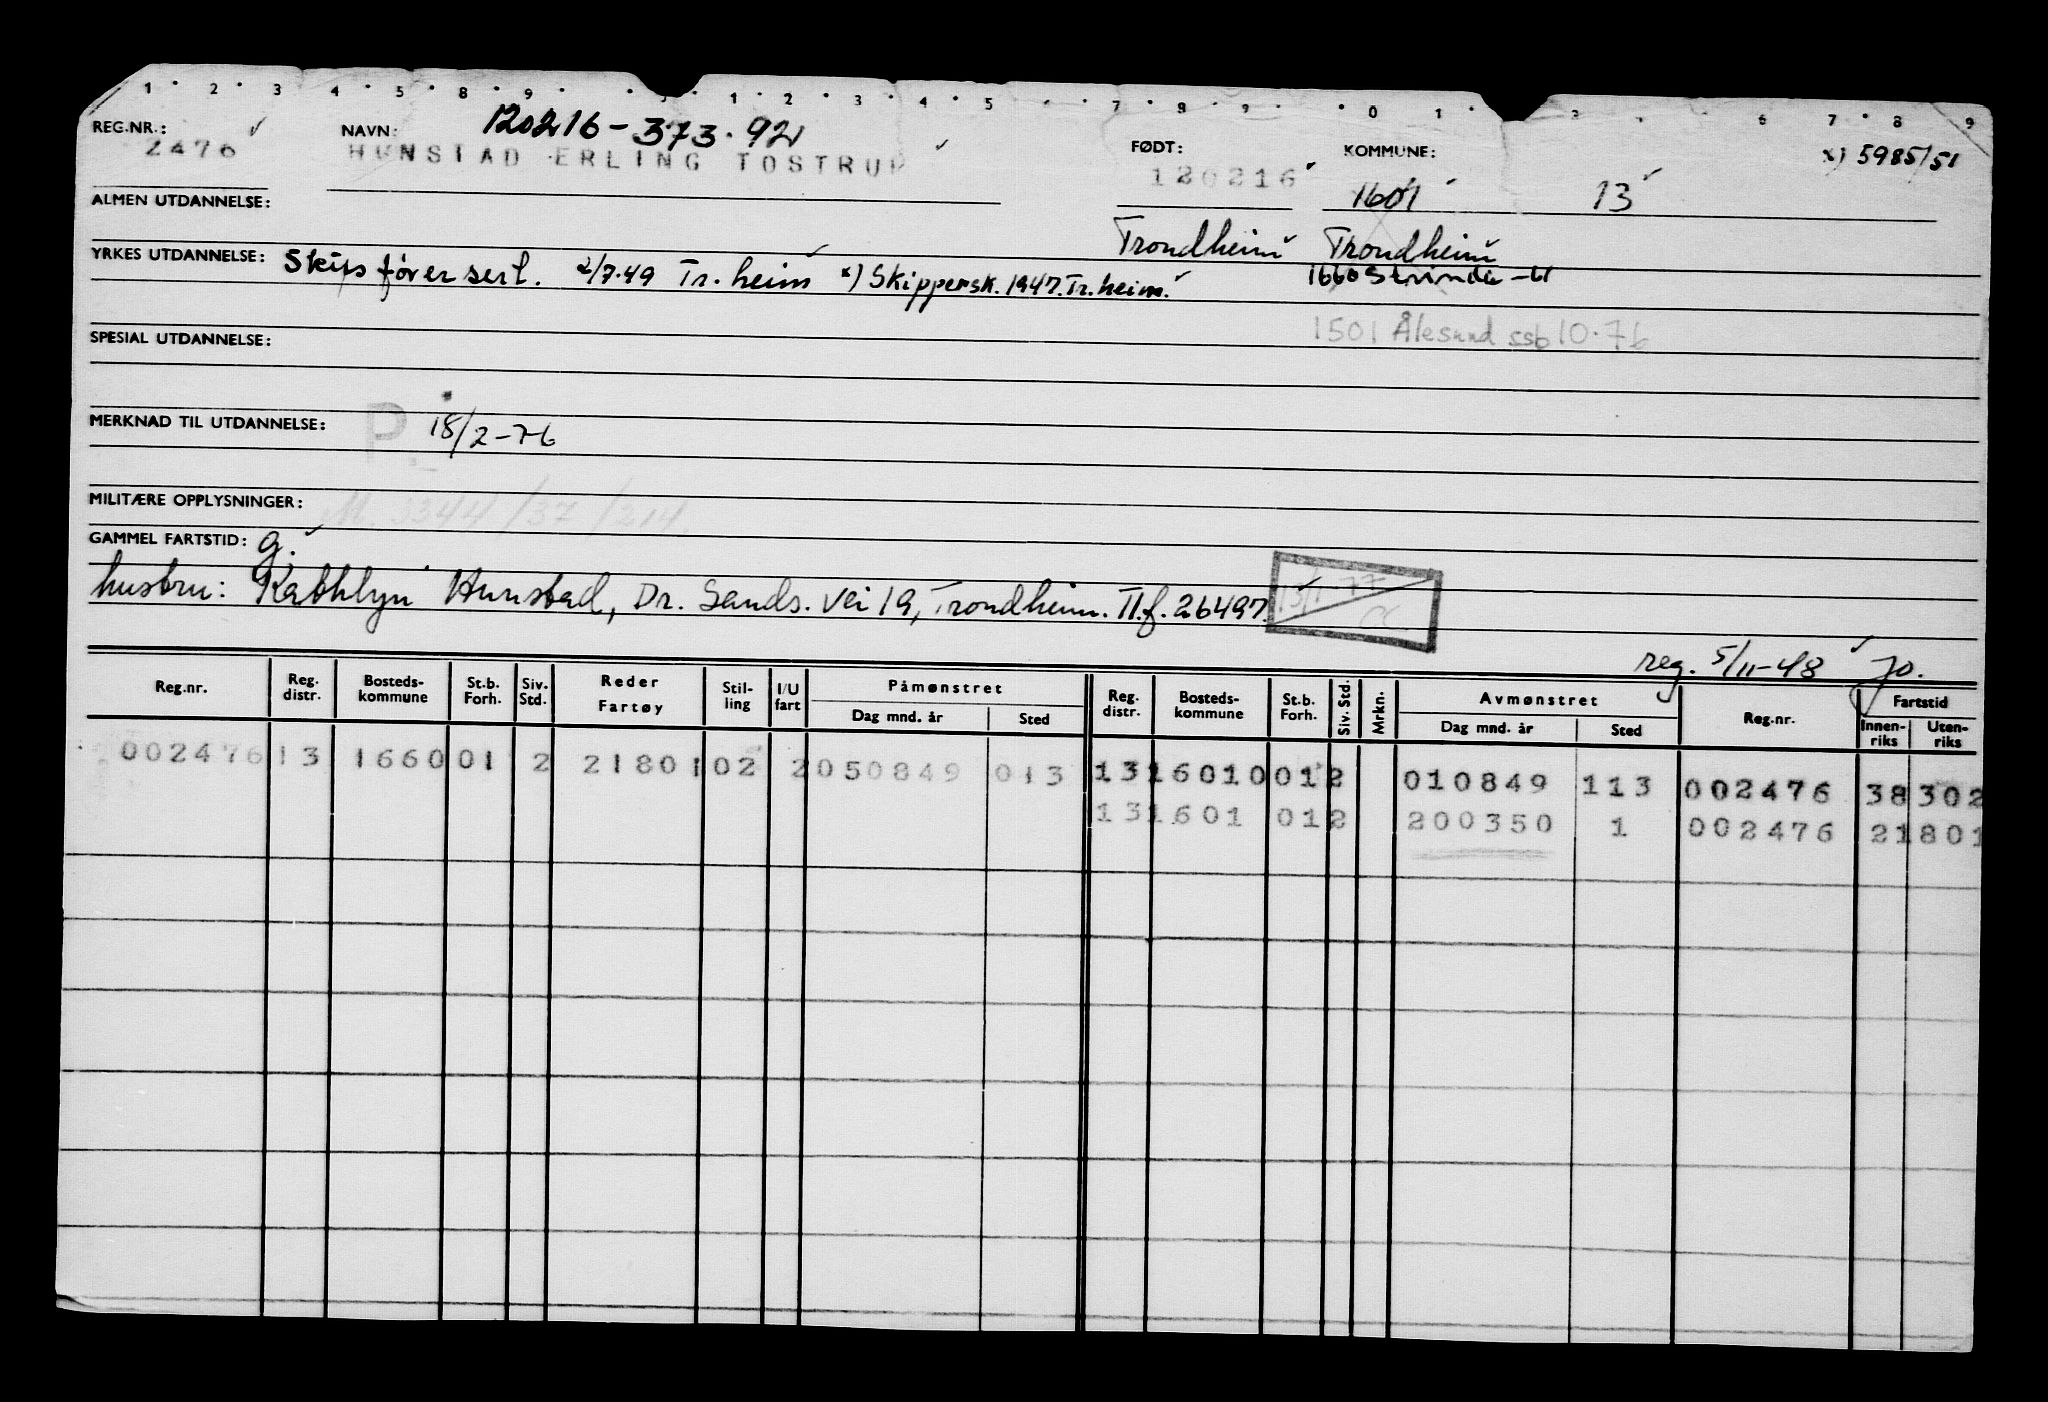 1 2 3 4 5 8 9 1 2 3 4 5 7 8 9 0 1 2 6 7 8 9
REG.NR.: 2476 NAVN: 120216-373.92 FØDT: KOMMUNE: x) 5985/51
HUNSTAD ERLING TOSTRUP 120216 1601 13
ALMEN UTDANNELSE: Trondheim Trondheim
YRKES UTDANNELSE: Skipsfører sert. 2/7.49 Tr.heim x) Skippersk. 1947. Tr.heim. 1660 Strinda -61
1501 Ålesund ssb 10.76
SPESIAL UTDANNELSE:
MERKNAD TIL UTDANNELSE: P 18/2-76
MILITÆRE OPPLYSNINGER: M. 3344/37/214.
GAMMEL FARTSTID: g.
hustru: Kathlyn Hunstad, Dr. Sands. vei 19, Trondheim. Tlf. 26497. 13/1-77
reg. 5/11-48 Jo.
Reg.nr. Reg. distr. Bosteds-kommune St.b. Forh. Siv. Std. Reder Fartøy Stil-ling I/U fart Påmønstret Dag mnd. år Sted Reg. distr. Bosteds-kommune St.b. Forh. Siv. Std. Mrkn. Avmønstret Dag mnd. år Sted Reg.nr. Fartstid Innen-riks Uten-riks
002476 13 1660 01 2 21801 02 2 050849 013 13 16010 012 010849 113 002476 38 302
13 1601 012 200350 1 002476 21801